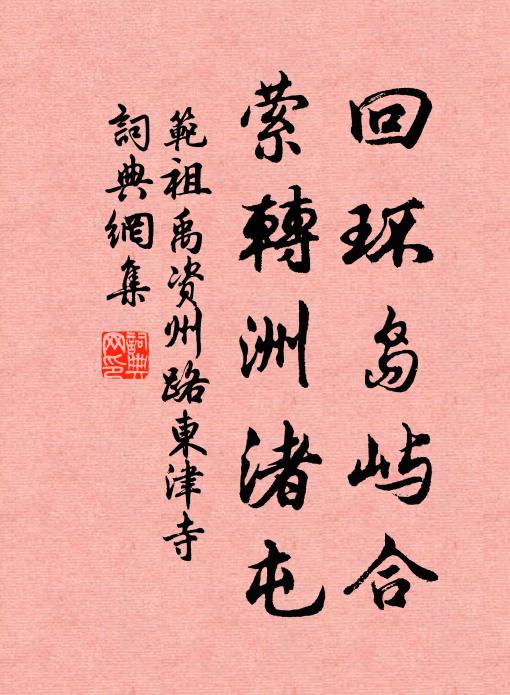 回环岛屿合
萦轉洲渚屯
範祖禹资州路東津寺
詞典網集
詞典网印